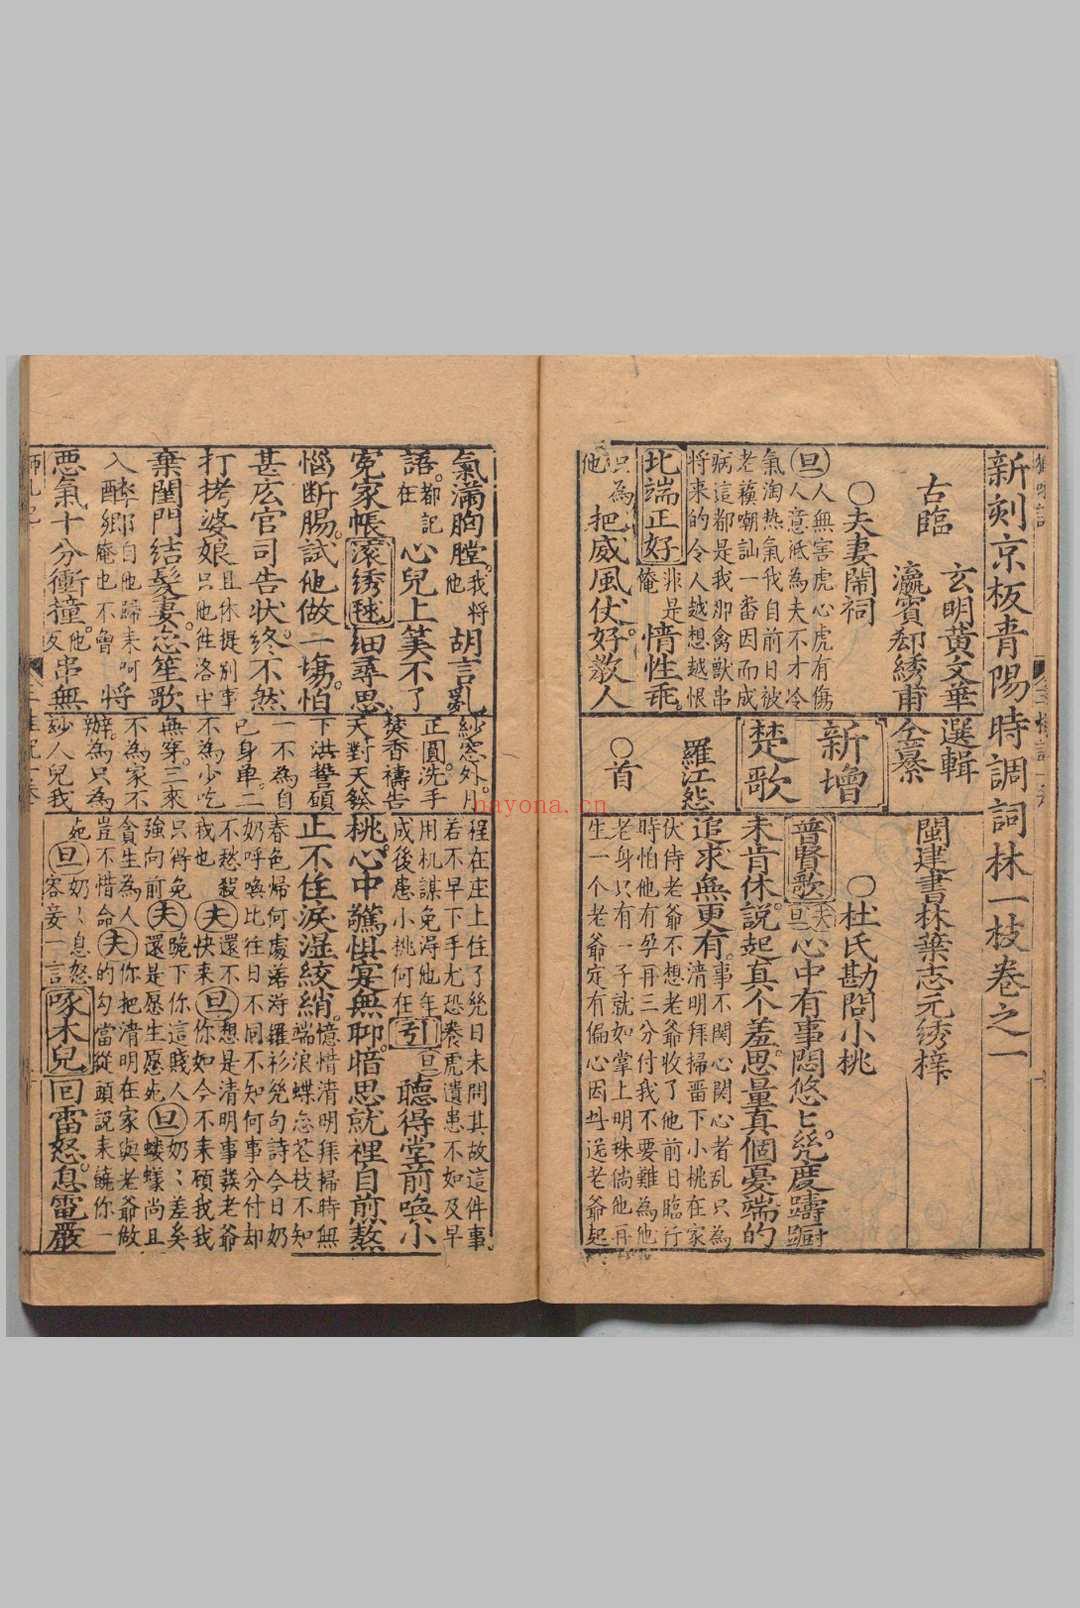 新刻京板青陽時調詞林一枝卷之一
古臨
玄明黃文華
選輯
瀛賓郄綉甫
仝纂
閩建書林葉志元綉梓
○夫妻鬧祠
旦人無害虎心虎有傷
人意祗為夫不才冷
氣淘熱氣我自前日被
老蘓嘲訕一番因而成
病這都是我那禽獸串
將來的令人越想越恨
北端正好
俺非是情性乖
只為他把威風仗好教人
氣滿胸膛他我將胡言亂
語在都記心兒上筭不了
冤家帳滚绣毬细尋思
惱断腸試他做一塲怕
甚庅官司告状終不然
打拷婆娘
且休提别事
只他性洛中
棄閨門結髪妻恋笙歌
入醉鄉
惡氣十分衝撞他
串無
新增
楚歌
羅江怨
○首
紗窓外月
正圓洗手
焚香禱告
天對天發
下洪誓碩
一不為自
已身单二
不為少吃
無穿三來
不為家不
辦為只為
玅人兒我
○杜氏勘問小桃
普賢歌
夫旦心中有事悶悠匕凭度躊躕
未肯休說起真个羞思量真個憂端的
追求無更有
清明拜掃畱下小桃在家
伏侍老爺不想老爺收了他前日臨行
時怕他有孕再三分付我不要難為他
老身只有一子就如掌上明珠倘他再
生一个老爺定有偏心因此送老爺起
程在庄上住了幾日未問其故這件事
若不早下手尤恐養虎遺患不如及早
用机謀免淂他年
成後患小桃何在
引
旦聽得堂前喚小
桃心中驚惧寔無聊暗思就裡自煎熬
止不住淚湿絞綃
憶惜清明拜掃時無
端浪蝶恋花枝不知
春色帰何處羅衫幾句詩今日奶
奶呼喚比往日不同不知何事分付却
不愁殺夫還不想是清明事發老爺
我也夫快來旦你如今不來碩我我
只得免
強向前夫跪下你這賤人旦奶〻差矣
還是愿生愿死螻蟻尚且
貪生為人
豈不惜命夫你把清明在家與老爺做
的勾當從頭說來饒你一
死旦奶〻息怒
容妾一言
啄木兒
回雷怒息電嚴
nayona.cn